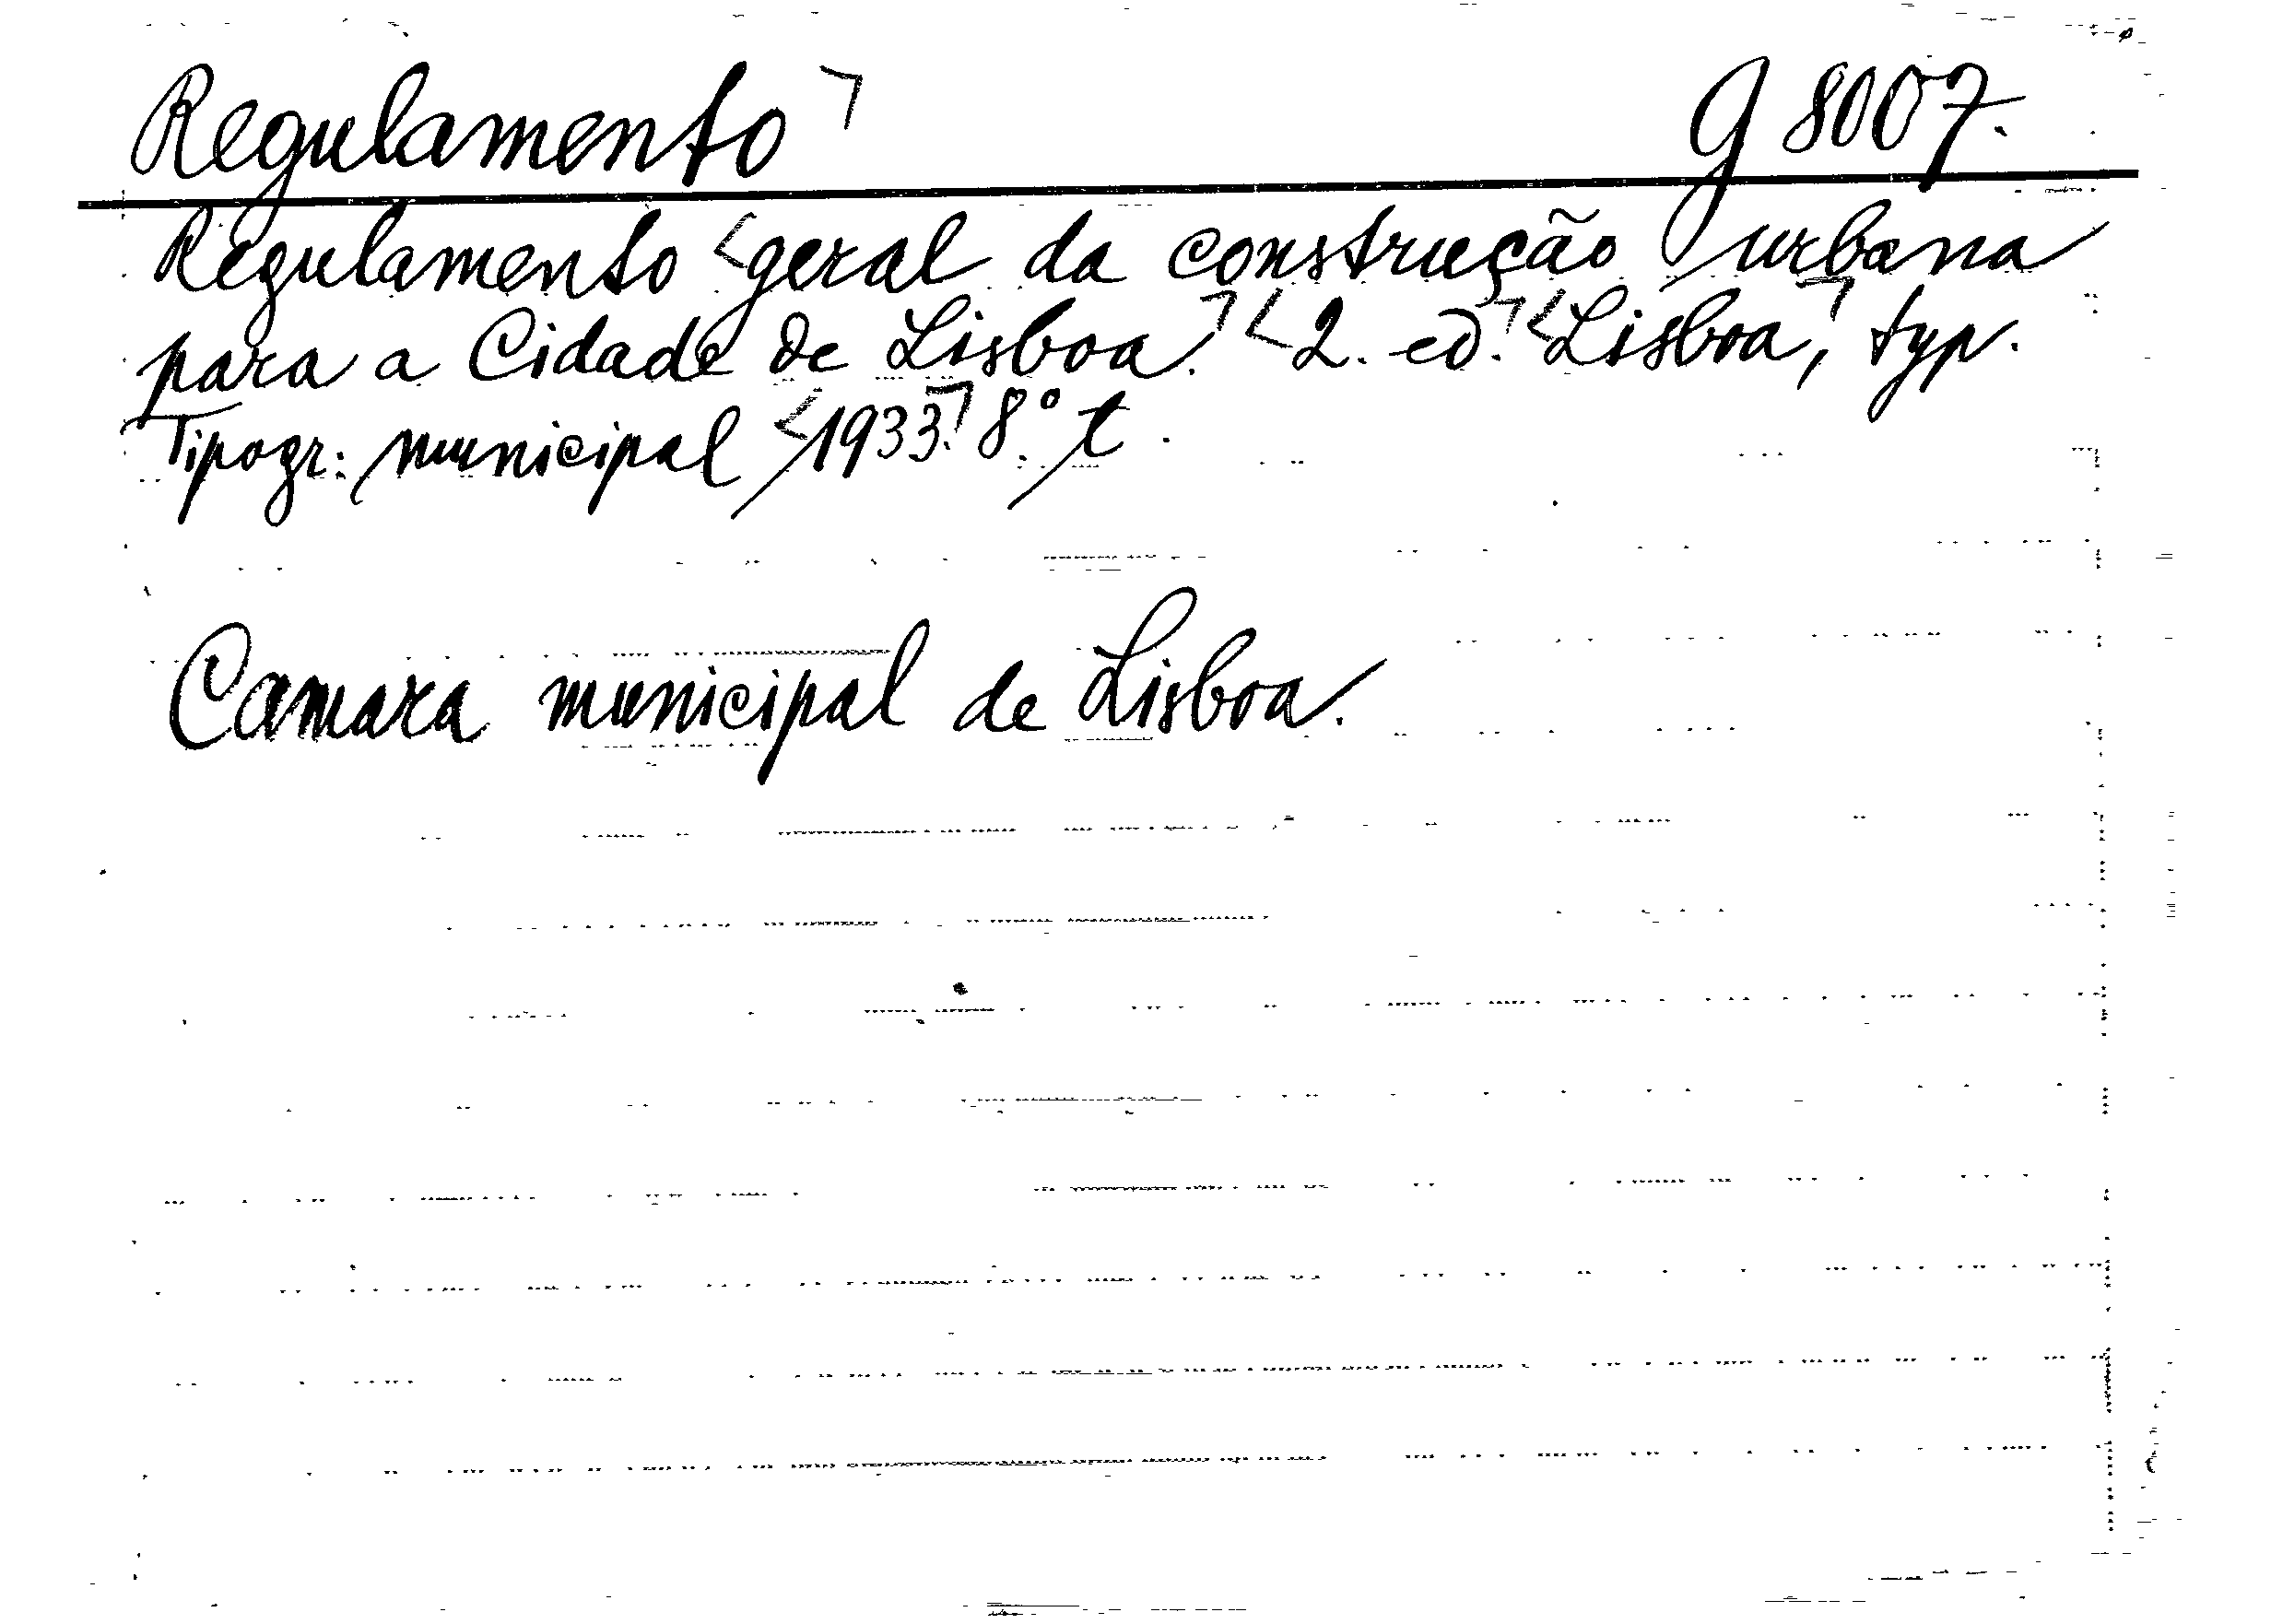 Regulamento g 8007.
Regulamento geral da construção urbana
para a Cidade de Lisboa. 2. ed. Lisboa, typ.
Tipogr: municipal 1933. 8.° t.
Camara municipal de Lisboa.